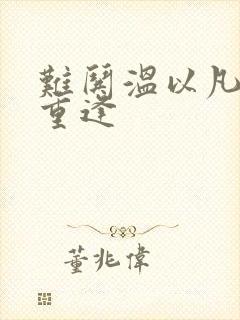 難鬨溫以凡
重逢
董兆偉